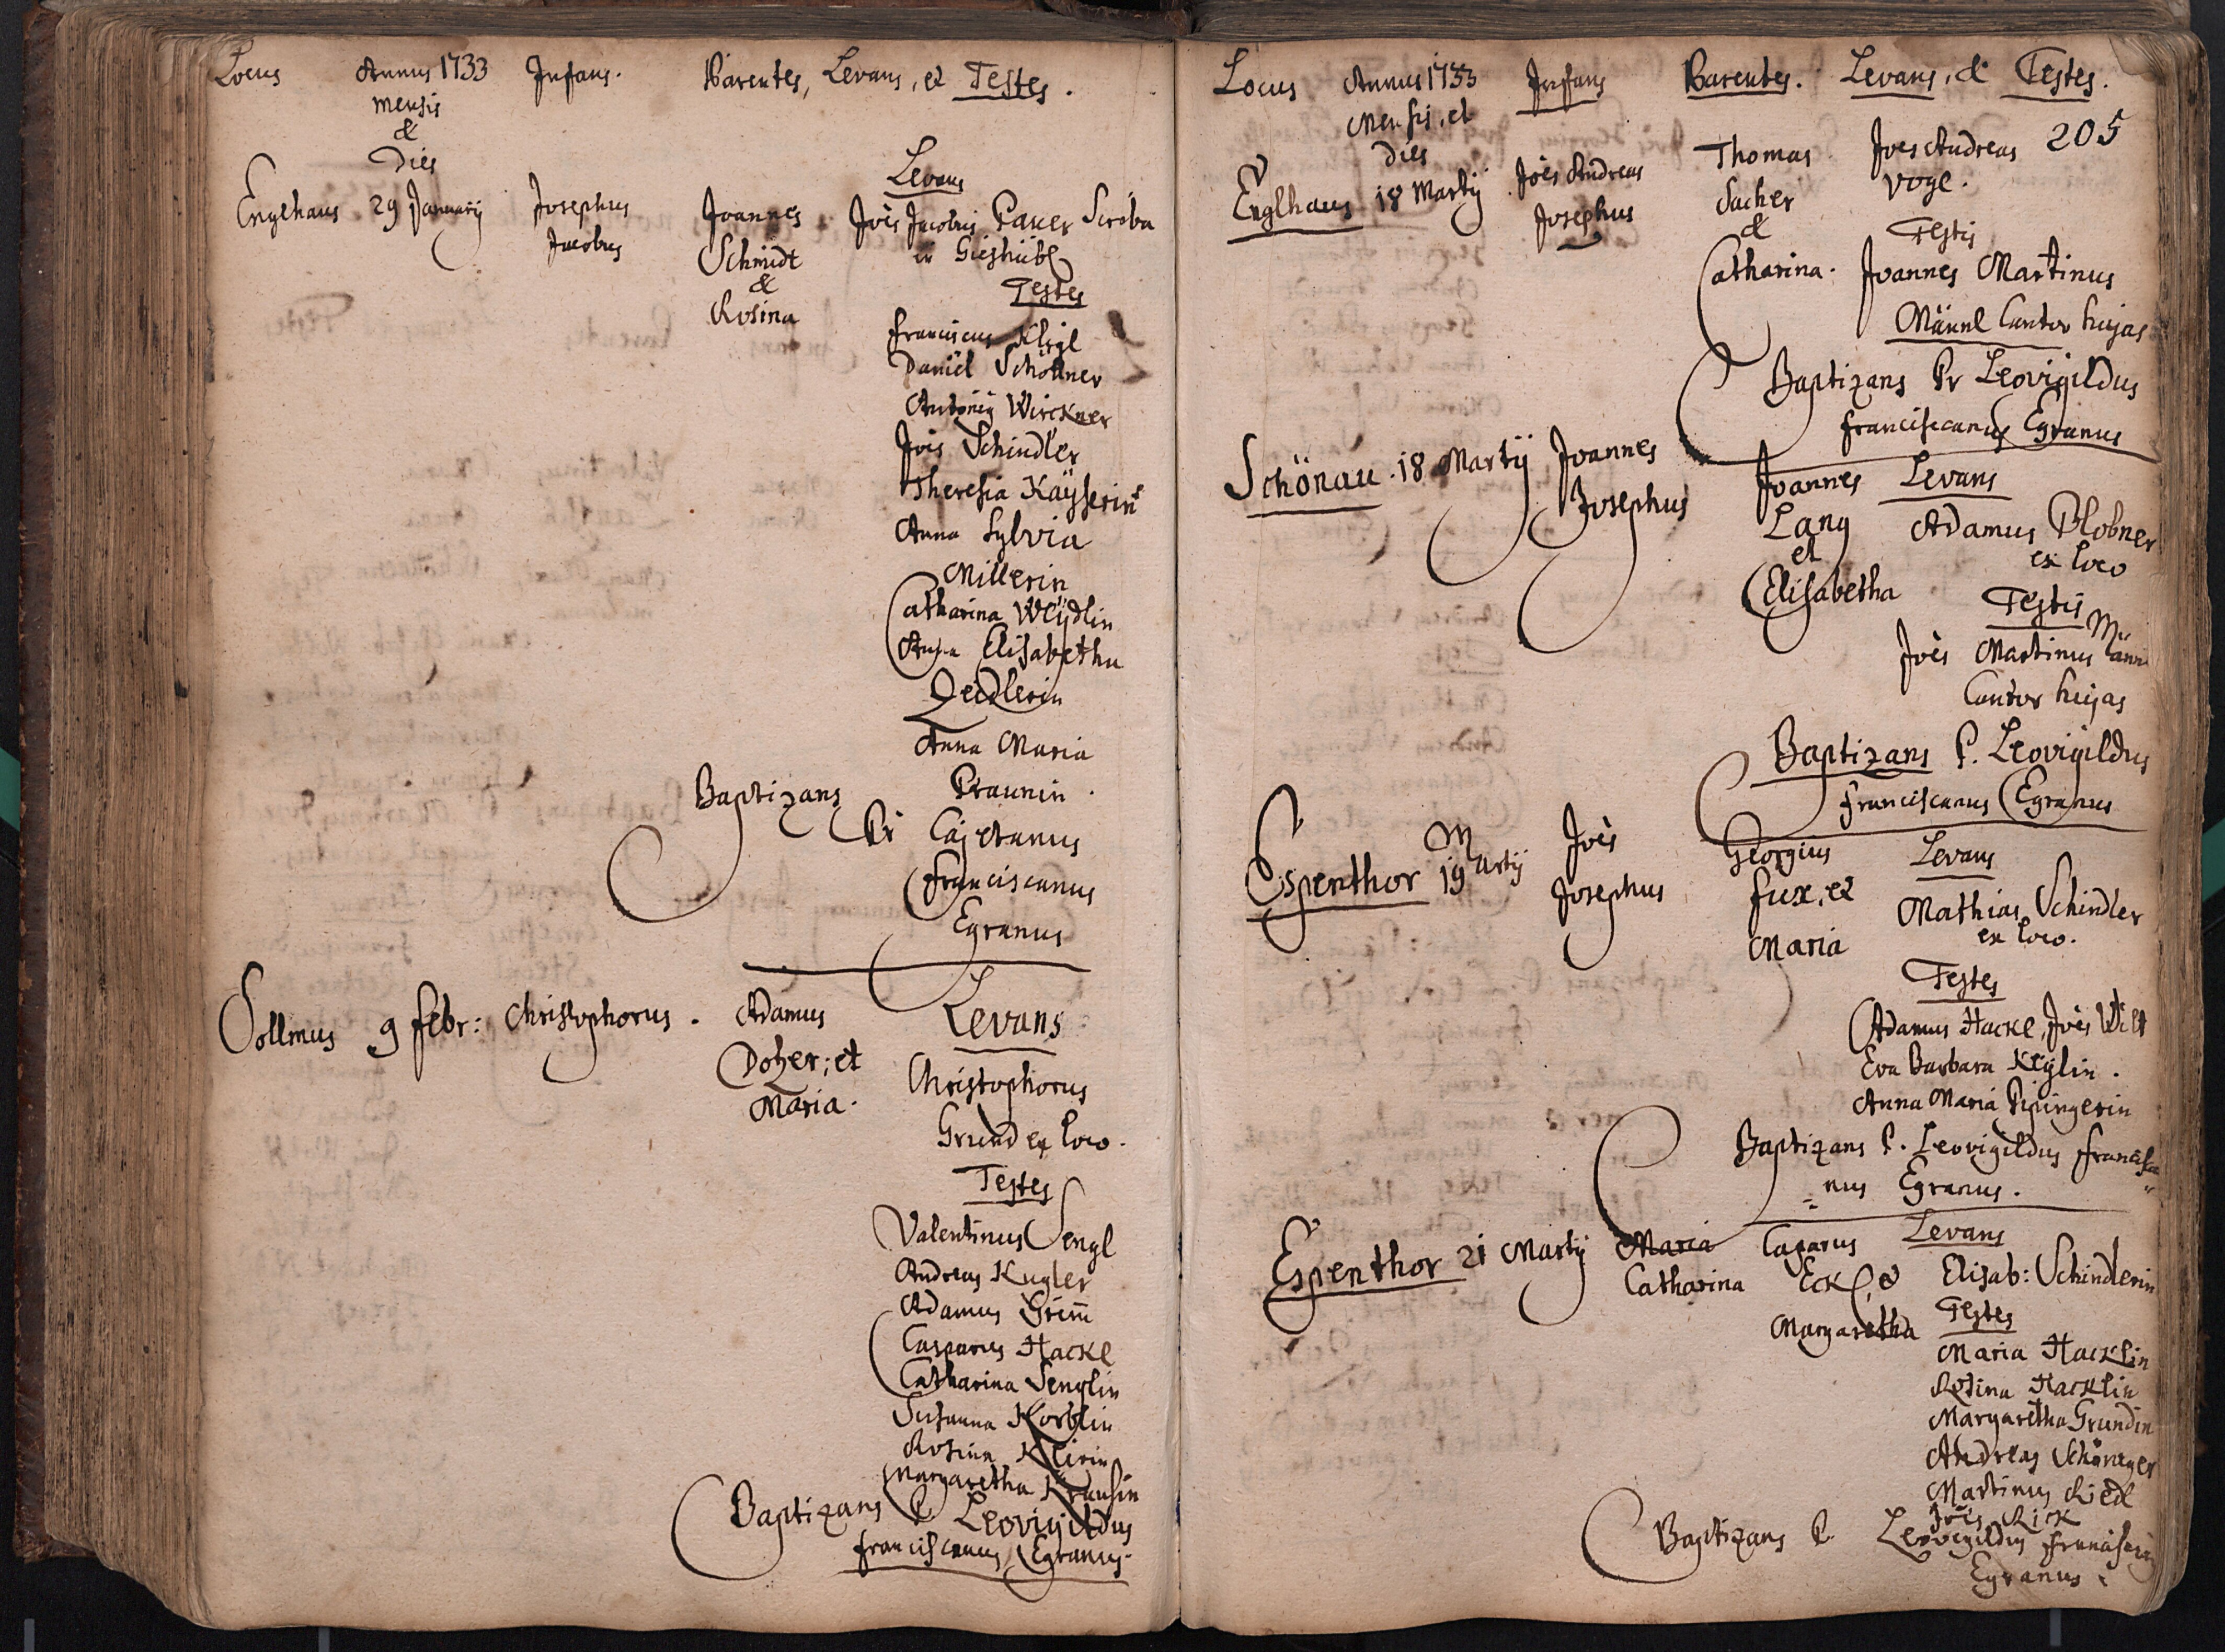 Locus Annus 1733 Infans. Parentes, Levans, et Testes.
mensis
&
Dies
Levans
Englhaus 29 January Josephus Joannes Jois Jacobus Pauer Scriba
Jacobus Schmidt in Gieshübl
&
Rosina
Testes
Franciscus Kligl
Daniel Schöttner
Antoniy Wirckner
Jois Schindler
Theresia Kaÿserin
Anna Sylvia
Millerin
Catharina Weÿdlin
Anna Elisabetha
Zeidlerin
Anna Maria
Praunin
Baptizans
Pr Cajetanus
Franciscanus
Egranus
Sollmus 9 Febr: Christophorus. Adamus Levans
Dotzer; et Christophorus
Maria. Grund ex loco.
Testes
Valentinus Sengl
Andreas Kugler
Adamus Grim̄
Casparus Hackl
Catharina Senglin
Susanna Korblin
Rosina
Margaretha Krausin
Baptizans P. Leovigildus
Franciscanus Egranus.
Locus Annus 1733 Infans Parentes. Levans, & Testes.
Mensis, et
Dies
205
Englhaus 18 Martij Joès Andreas Thomas Joes Andreas
Josephus Sacher Vogl.
&
Catharina.
Testis
Joannes Martinus
Männl Cantor hujas
Baptizans Pr Leovigildus
Franciscanus Egranus
Schönau. 18 Martij Joannes Joannes Levans
Josephus Lang Adamus Plobner
et ex loco
Elisabetha Testis
Joès Martinus Män
Cantor hujas
Baptizans P. Leovigildus
Franciscanus Egranus
Espenthor 19 Martij Joès Georgius Levans
Josephus Fux, et Mathias Schindler
Maria ex loco.
Testes
Adamus Hackl, Joès Wilt
Eva Barbara Keÿlin.
Anna Maria Pipingerin
Baptizans P. Leovigildus Francisca
nus Egranus.
Espenthor 21 Martij Maria Casarus Levans
Catharina Eckl, & Elisab: Schindlerin
Margaretha Testes
Maria Hacklin
Rosina Hacklin
Margaretha Grundin
Andreas
Martinus Riedl
Joès Rick
Baptizans P. Leovigildus
Egranus